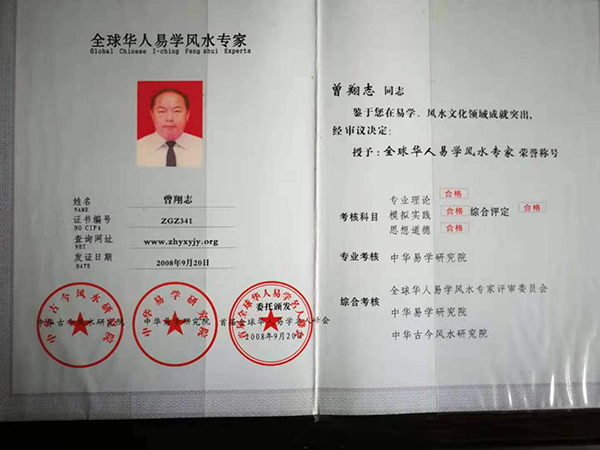 全球华人易学风水专家
Global Chinese I-ching Feng shui Experts
姓名 曾翔志
NAME
证书编号 ZGZ341
NO CIPA
查询网址 www.zhyxyjy.org
NET
发证日期 2008年9月20日
DATE
委托颁发
中华古今风水研究院 中华易学研究院 首届全球华人易学名人峰会
2008年9月20
中华古今风水研究院
中华易学研究院
曾翔志 同志
鉴于您在易学、风水文化领域成就突出，
经审议决定：
授予：全球华人易学风水专家 荣誉称号
专业理论 合格
考核科目 模拟实践 合格 综合评定 合格
思想道德 合格
专业考核 中华易学研究院
全球华人易学风水专家评审委员会
综合考核 中华易学研究院
中华古今风水研究院